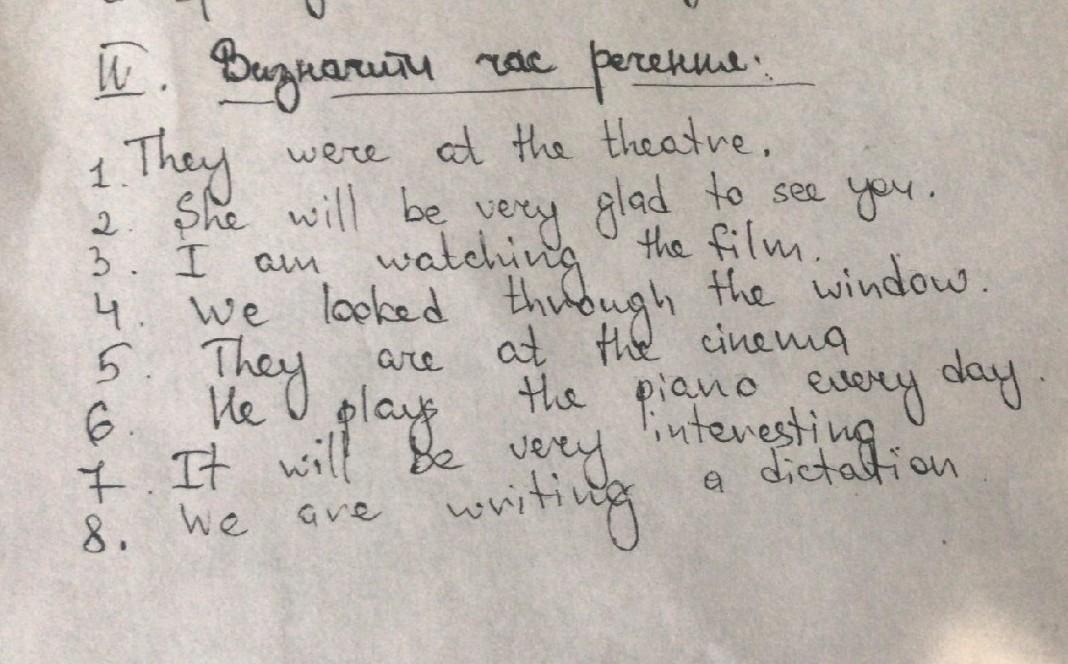 IV. Визначити час речення:
1. They were at the theatre.
2. She will be very glad to see you.
3. I am watching the film.
4. We looked through the window.
5. They are at the cinema
6. He plays the piano every day.
7. It will be very interesting
8. We are writing a dictation.